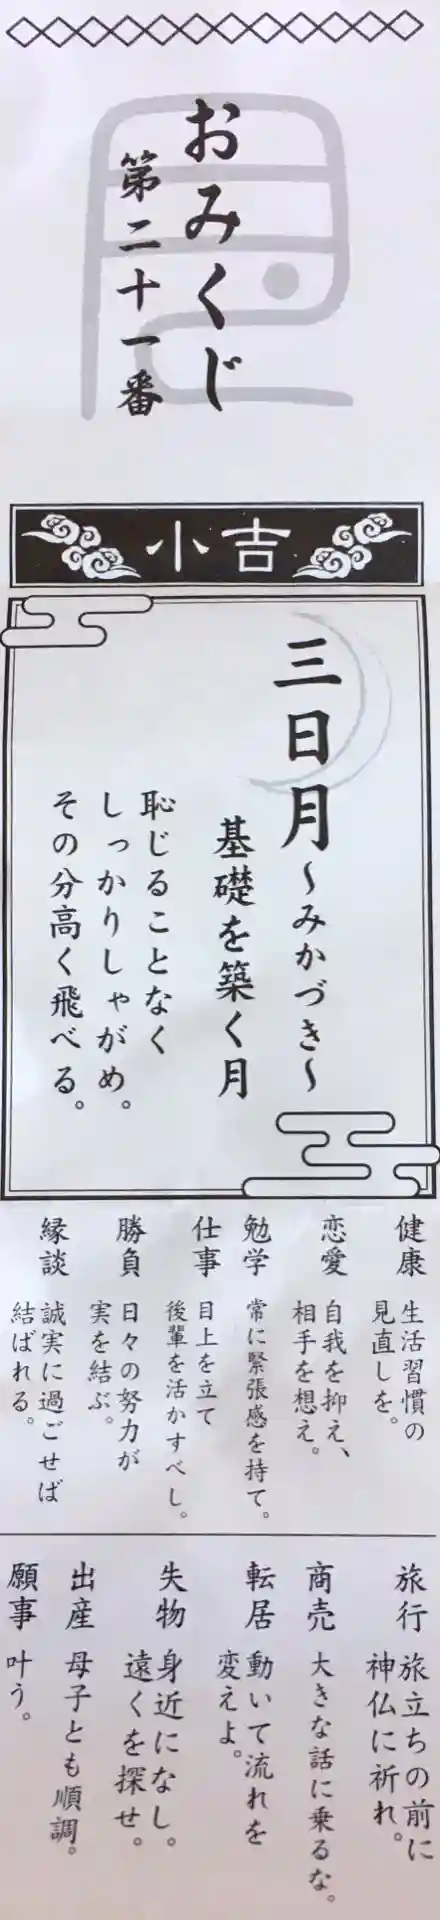 おみくじ
第二十一番
小吉
三日月～みかづき～
基礎を築く月
恥じることなく
しっかりしゃがめ。
その分高く飛べる。
健康
生活習慣の
見直しを。
恋愛
自我を抑え、
相手を想え。
勉学
常に緊張感を持て。
仕事
目上を立て
後輩を活かすべし。
勝負
日々の努力が
実を結ぶ。
縁談
誠実に過ごせば
結ばれる。
旅行
旅立ちの前に
神仏に祈れ。
商売
大きな話に乗るな。
転居
動いて流れを
変えよ。
失物
身近になし。
遠くを探せ。
出産
母子とも順調。
願事
叶う。